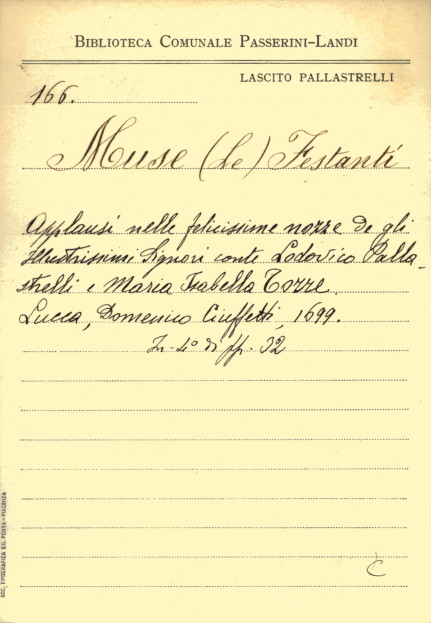 BIBLIOTECA COMUNALE PASSERINI-LANDI
LASCITO PALLASTRELLI
166.
Muse (Le) Festanti
Applausi nelle felicissime nozze de gli
Illustrissimi Signori conte Lodovico Palla-
strelli e Maria Isabella Torre.
Lucca, Domenico Ciuffetti, 1699.
In-4° di pp. 32
SOC. TIPOGRAFICA ED. PORTA - PIACENZA
C